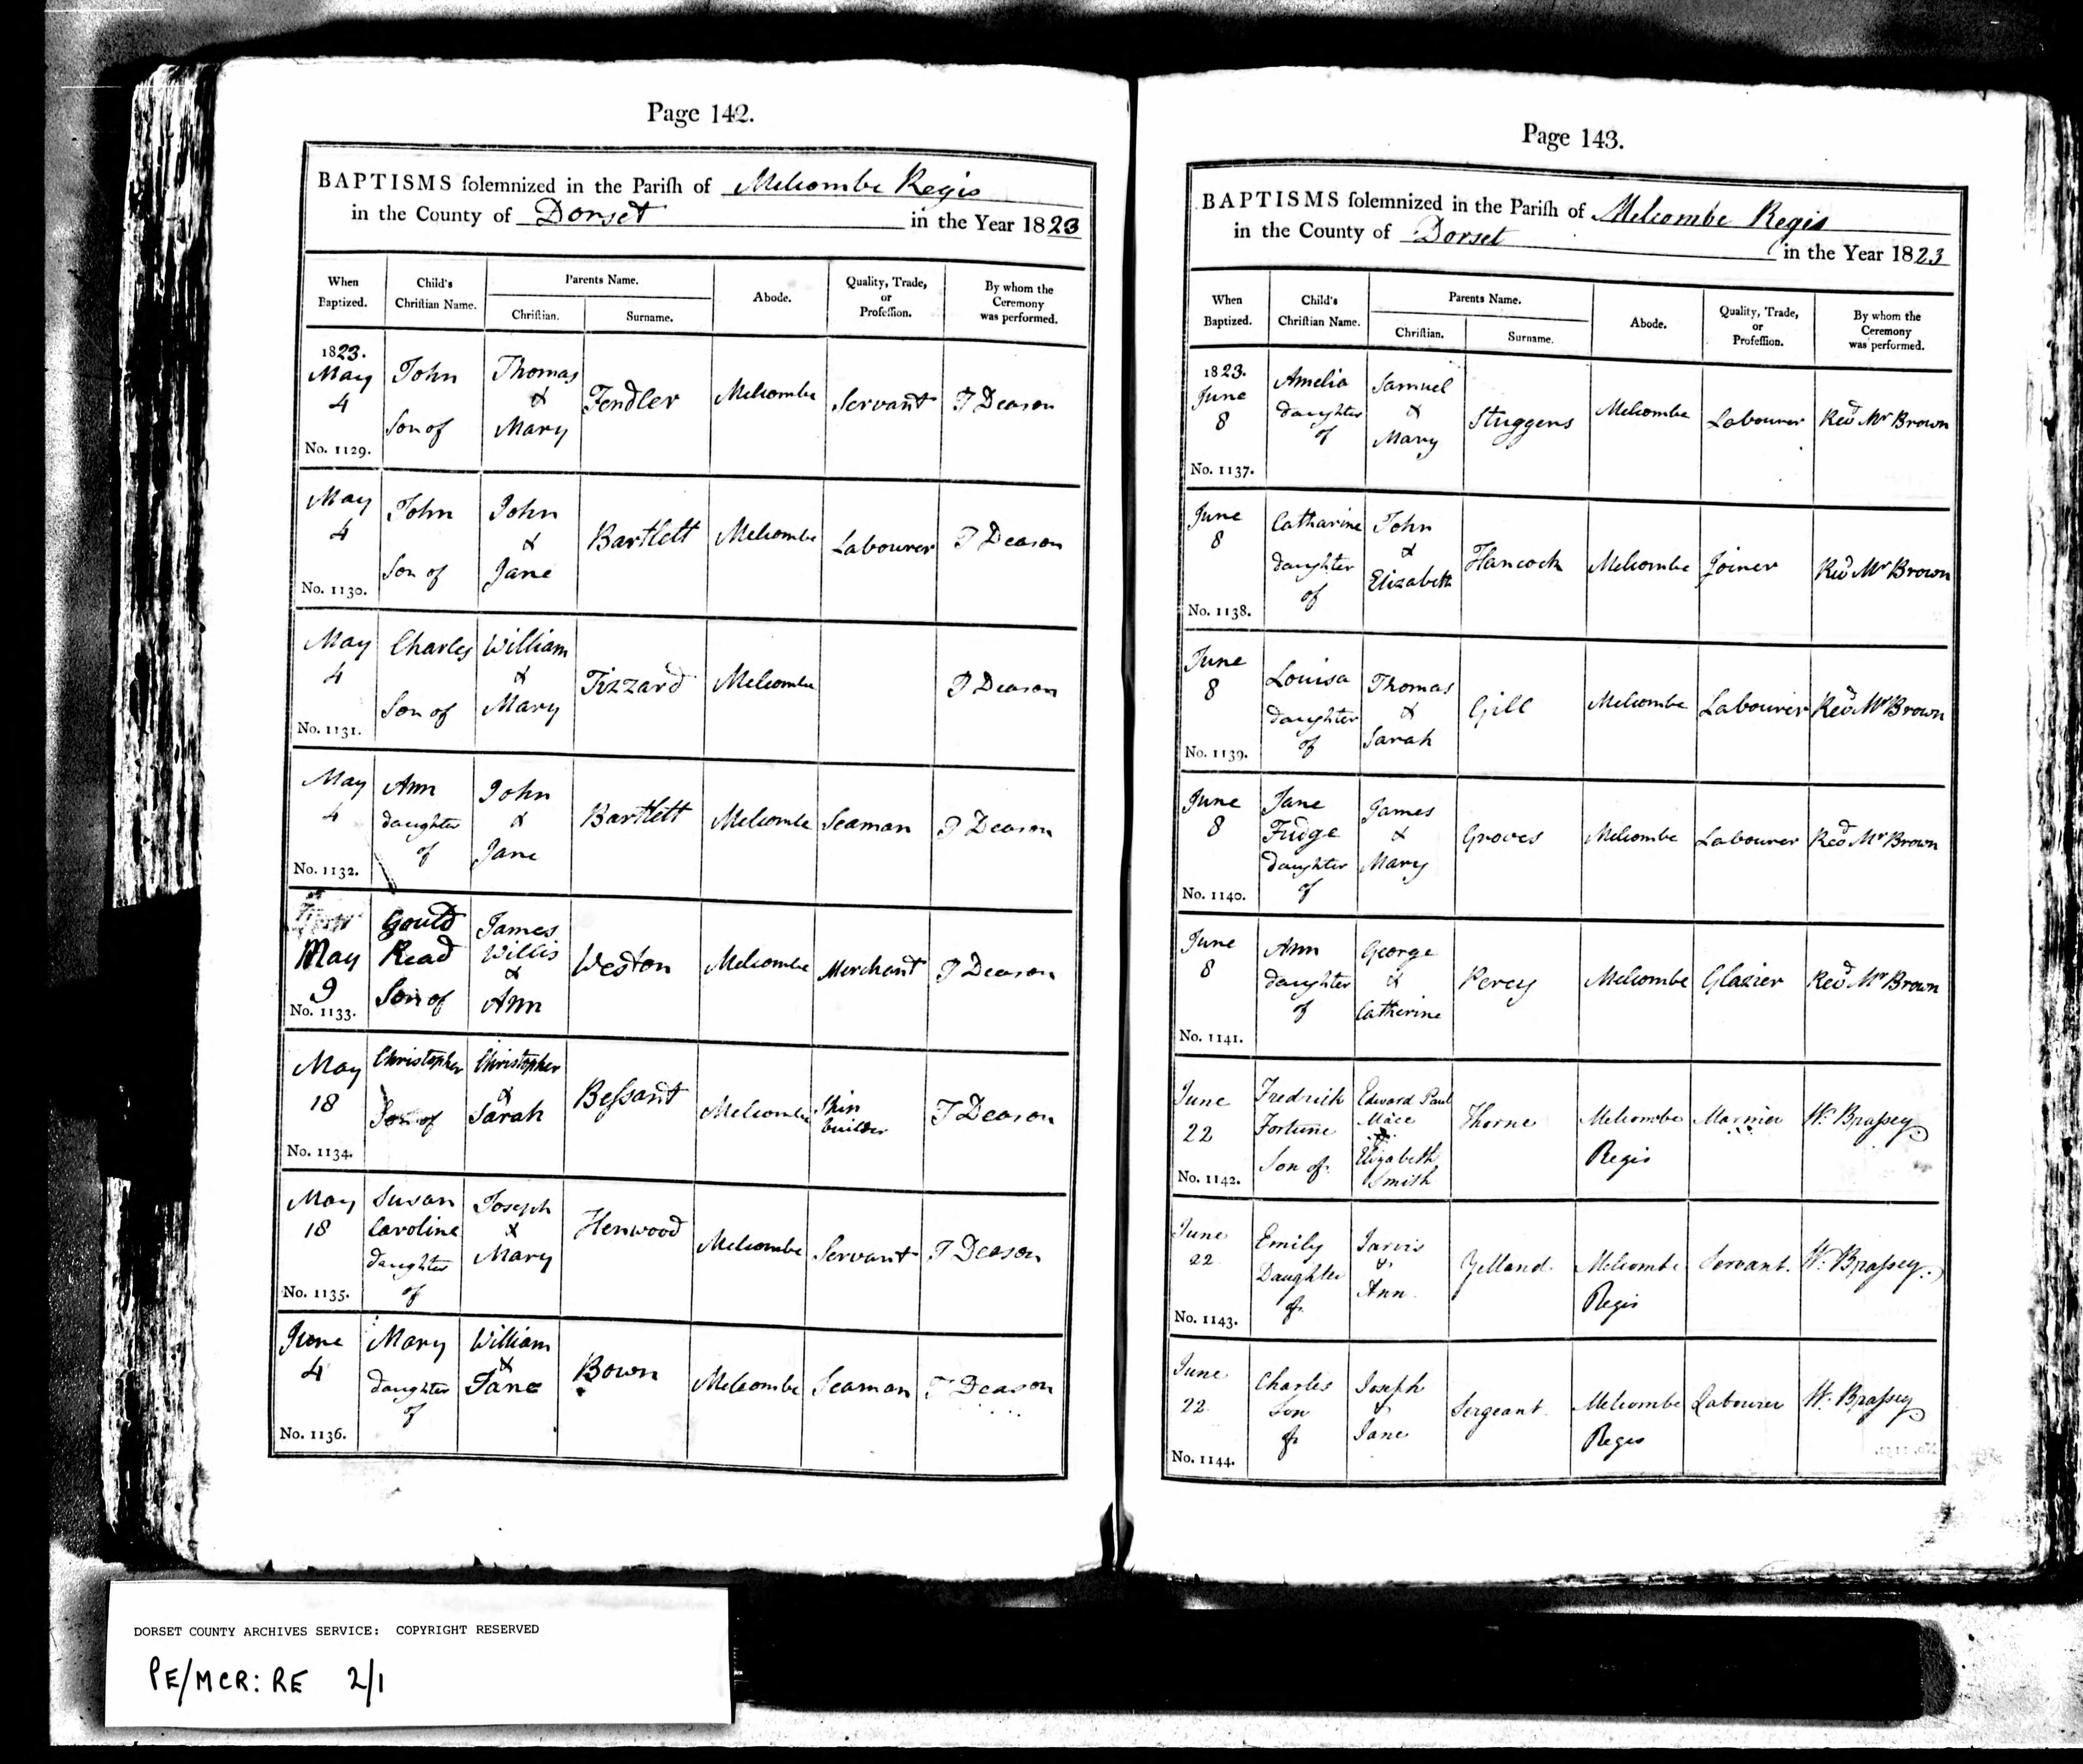 Page 142.
BAPTISMS solemnized in the Parish of Melcombe Regis
in the County of Dorset in the Year 1823
When Baptized. Child's Christian Name. Parents Name. Christian. Surname. Abode. Quality, Trade, or Profession. By whom the Ceremony was performed.
1823. May 4 No. 1129. John Son of Thomas & Mary Fendler Melcombe Servant T Deason
May 4 No. 1130. John Son of John & Jane Bartlett Melcombe Labourer T Deason
May 4 No. 1131. Charles Son of William & Mary Tizzard Melcombe T Deason
May 4 No. 1132. Ann daughter of John & Jane Bartlett Melcombe Seaman T Deason
May 9 No. 1133. Gould Read Son of James Willis & Ann Weston Melcombe Merchant T Deason
May 18 No. 1134. Christopher Son of Christopher & Sarah Bessant Melcombe Ship builder T Deason
May 18 No. 1135. Susan Caroline daughter of Joseph & Mary Henwood Melcombe Servant T Deason
June 4 No. 1136. Mary daughter of William & Jane Bown Melcombe Seaman T Deason
Page 143.
BAPTISMS solemnized in the Parish of Melcombe Regis
in the County of Dorset in the Year 1823
When Baptized. Child's Christian Name. Parents Name. Christian. Surname. Abode. Quality, Trade, or Profession. By whom the Ceremony was performed.
1823. June 8 No. 1137. Amelia daughter of Samuel & Mary Stuggens Melcombe Labourer Revd Mr Brown
June 8 No. 1138. Catharine daughter of John & Elizabeth Hancock Melcombe Joiner Revd Mr Brown
June 8 No. 1139. Louisa daughter of Thomas & Sarah Gill Melcombe Labourer Revd Mr Brown
June 8 No. 1140. Jane Fudge daughter of James & Mary Groves Melcombe Labourer Revd Mr Brown
June 8 No. 1141. Ann daughter of George & Catherine Percy Melcombe Glazier Revd Mr Brown
June 22 No. 1142. Fredrick Fortune Son of Edward Paul Mace & Elizabeth Smith Thorne Melcombe Regis Marnier W. Brassey
June 22 No. 1143. Emily Daughter of Jarvis & Ann Yelland Melcombe Regis Servant. W. Brassey
June 22 No. 1144. Charles Son of Joseph & Jane Sergeant Melcombe Regis Labourer W. Brassey
DORSET COUNTY ARCHIVES SERVICE: COPYRIGHT RESERVED
PE/MCR: RE 2/1